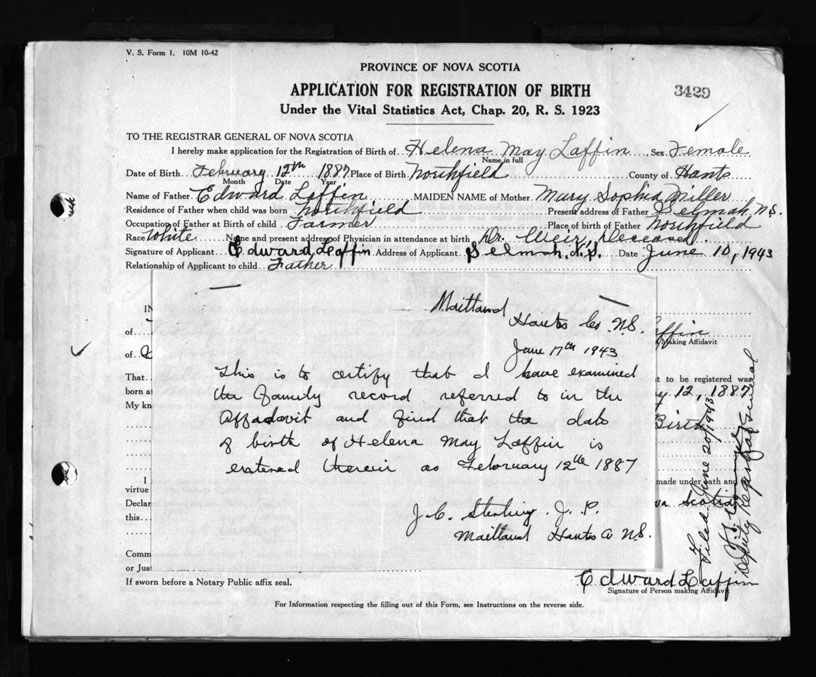 V. S. Form 1. 10M 10-42
PROVINCE OF NOVA SCOTIA
APPLICATION FOR REGISTRATION OF BIRTH
3429
Under the Vital Statistics Act, Chap. 20, R. S. 1923
TO THE REGISTRAR GENERAL OF NOVA SCOTIA
I hereby make application for the Registration of Birth of Helena May Laffin, Sex Female
Name in full
Date of Birth February 12th 1887 Place of Birth Northfield County of Hants
Month Date Year
Name of Father Edward Laffin MAIDEN NAME of Mother Mary Sophia Miller
Residence of Father when child was born Northfield Present address of Father Selmah, N.S.
Occupation of Father at Birth of child Farmer Place of birth of Father Northfield
Race White Name and present address of Physician in attendance at birth Dr. Weir, Deceased
Signature of Applicant Edward Laffin Address of Applicant Selmah, N.S. Date June 10, 1943
Relationship of Applicant to child Father
Maitland
Hants Co N.S.
June 17th 1943
This is to certify that I have examined
the Family record referred to in the
Affadavit and find that the date
of birth of Helena May Laffin is
entered therein as February 12th 1887
J. C. Sterling J. P.
Maitland Hants Co N.S.
IN
of
of
That
born at
My kn
I
virtue
Declar
this
Comm
or Jus
If sworn before a Notary Public affix seal.
affin
Making Affidavit
t to be registered was
y 12, 1887
Birth
made under oath and
va Scotia
Filed June 20/1943
Deputy Registrar General
Edward Laffin
Signature of Person making Affidavit
For Information respecting the filling out of this Form, see Instructions on the reverse side.